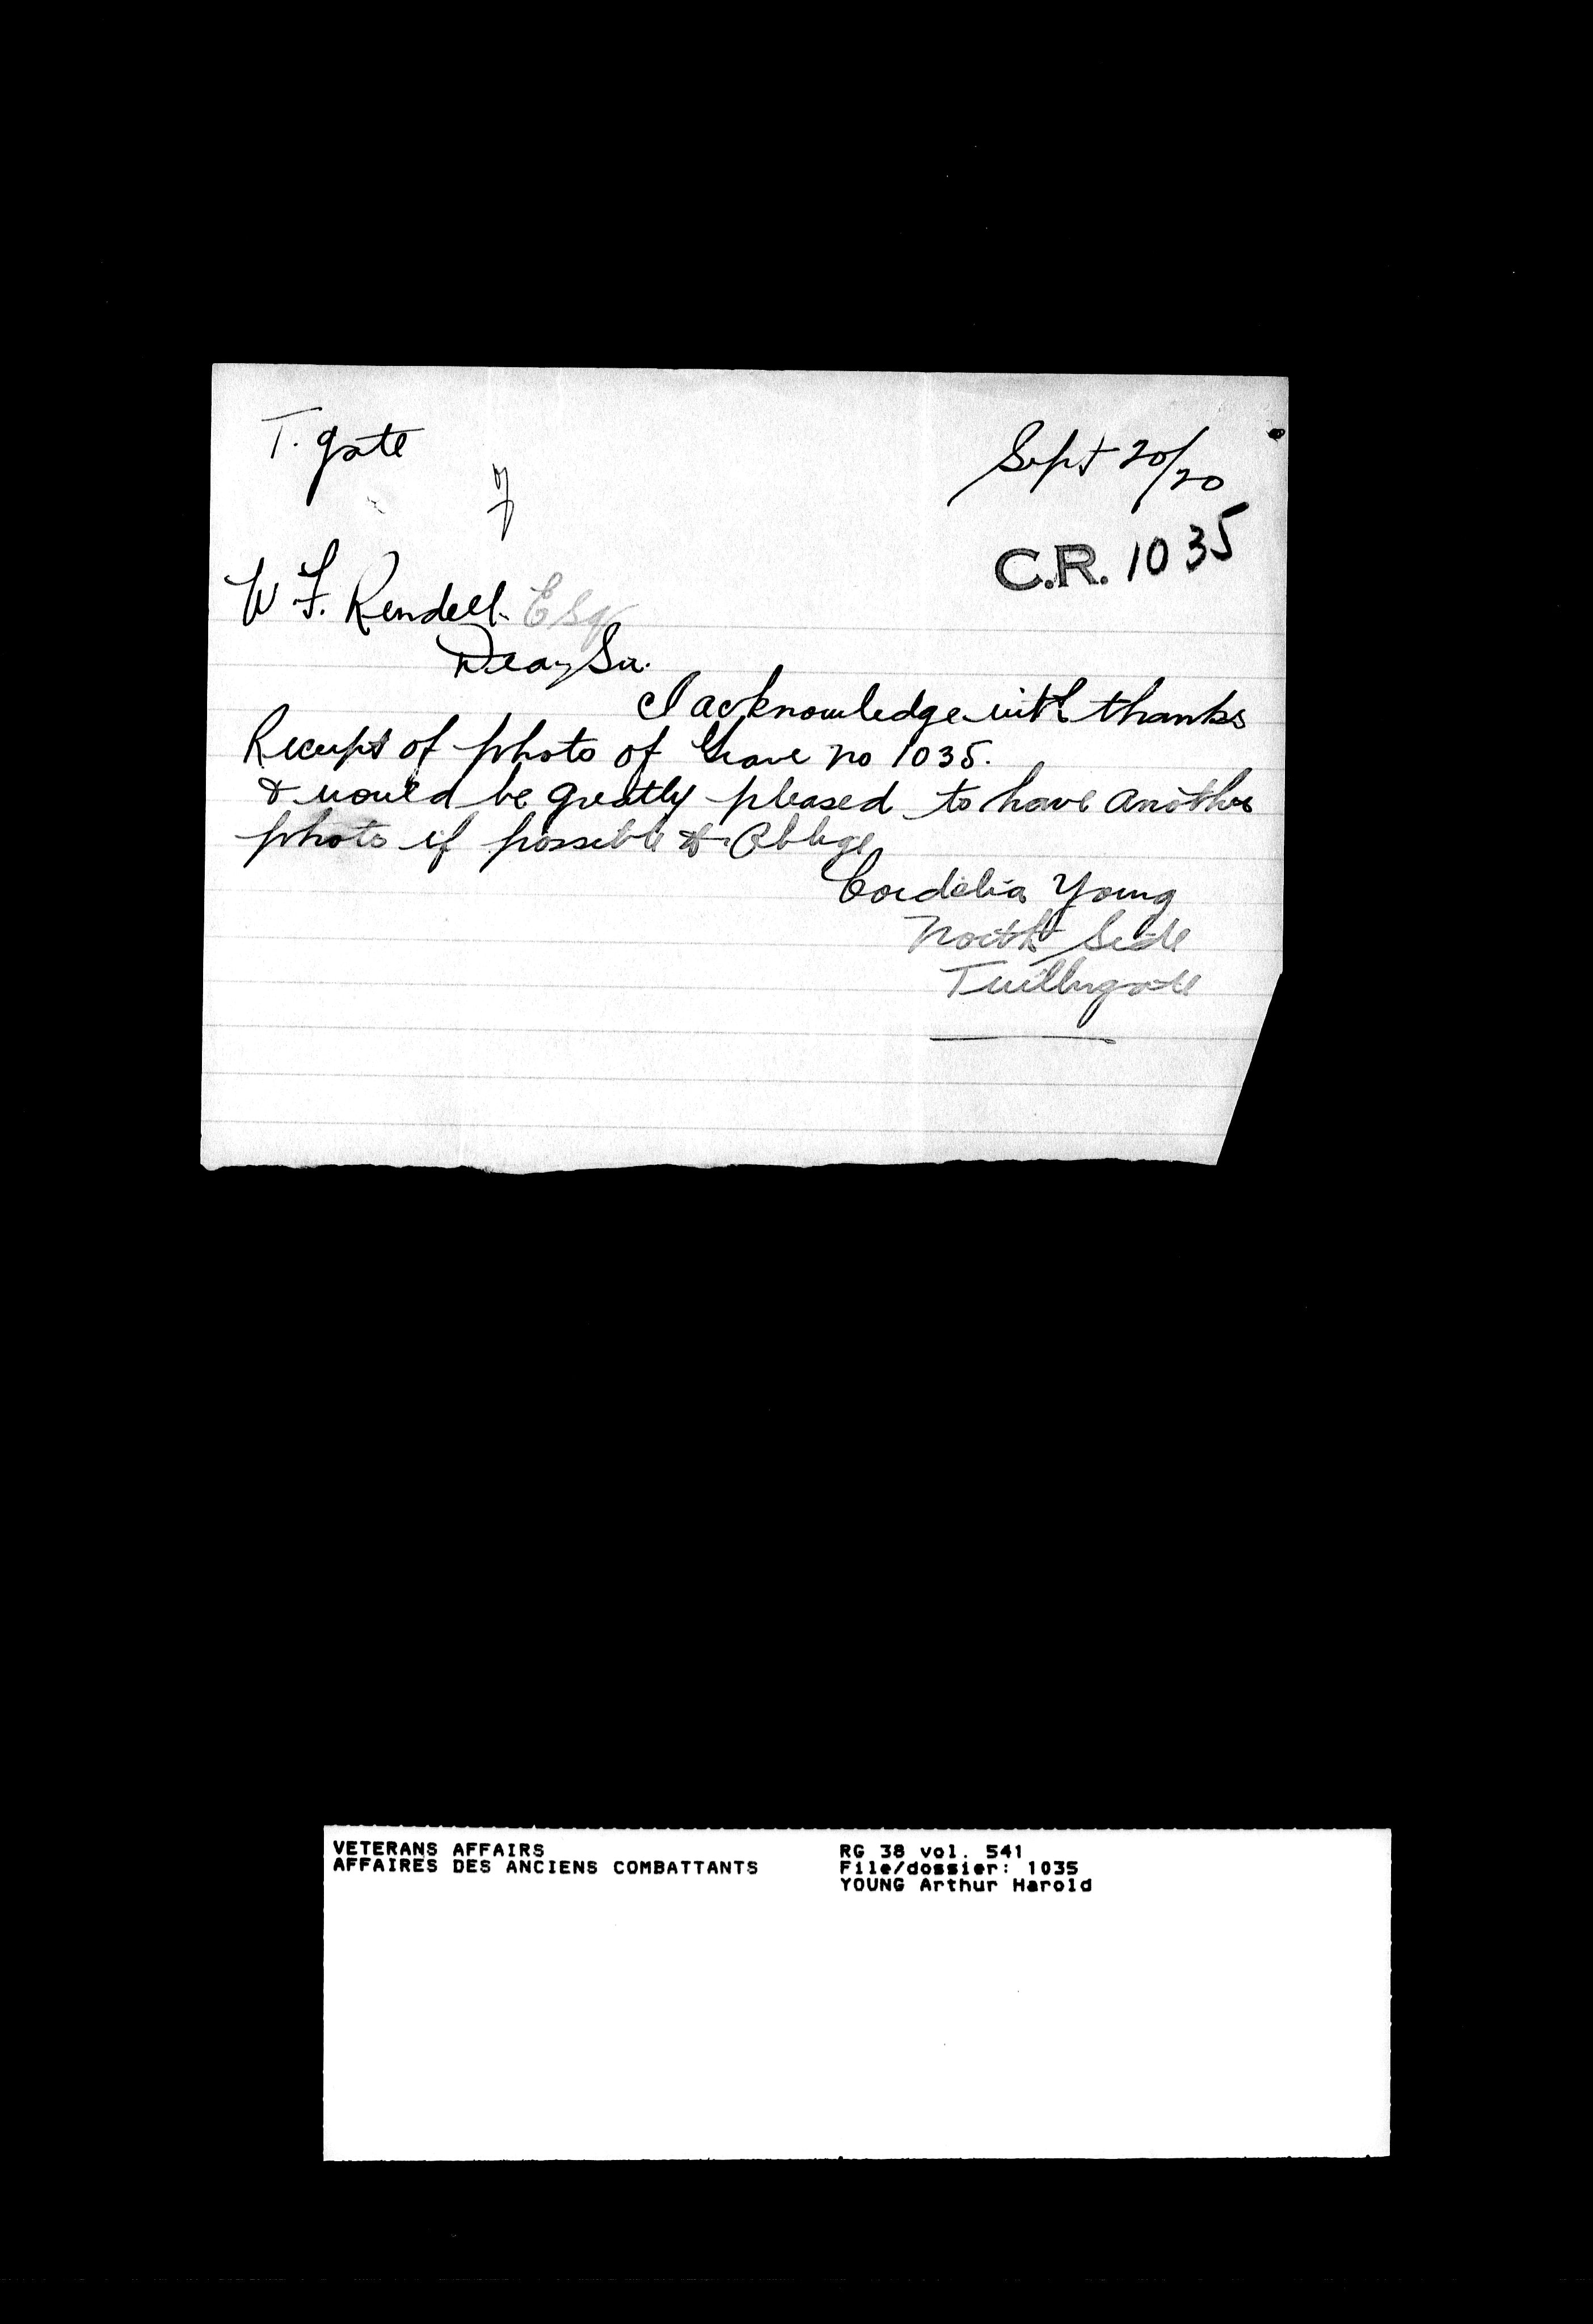 T. gate
Sept 20/20
C.R. 1035
W F. Rendell Esq
Dear Sir.
I acknowledge with thanks
Receipt of photo of Grave no 1035.
& would be greatly pleased to have another
photo if possible & Oblige
Cordelia Young
North Side
Twillingate
VETERANS AFFAIRS
AFFAIRES DES ANCIENS COMBATTANTS
RG 38 vol. 541
File/dossier: 1035
YOUNG Arthur Harold